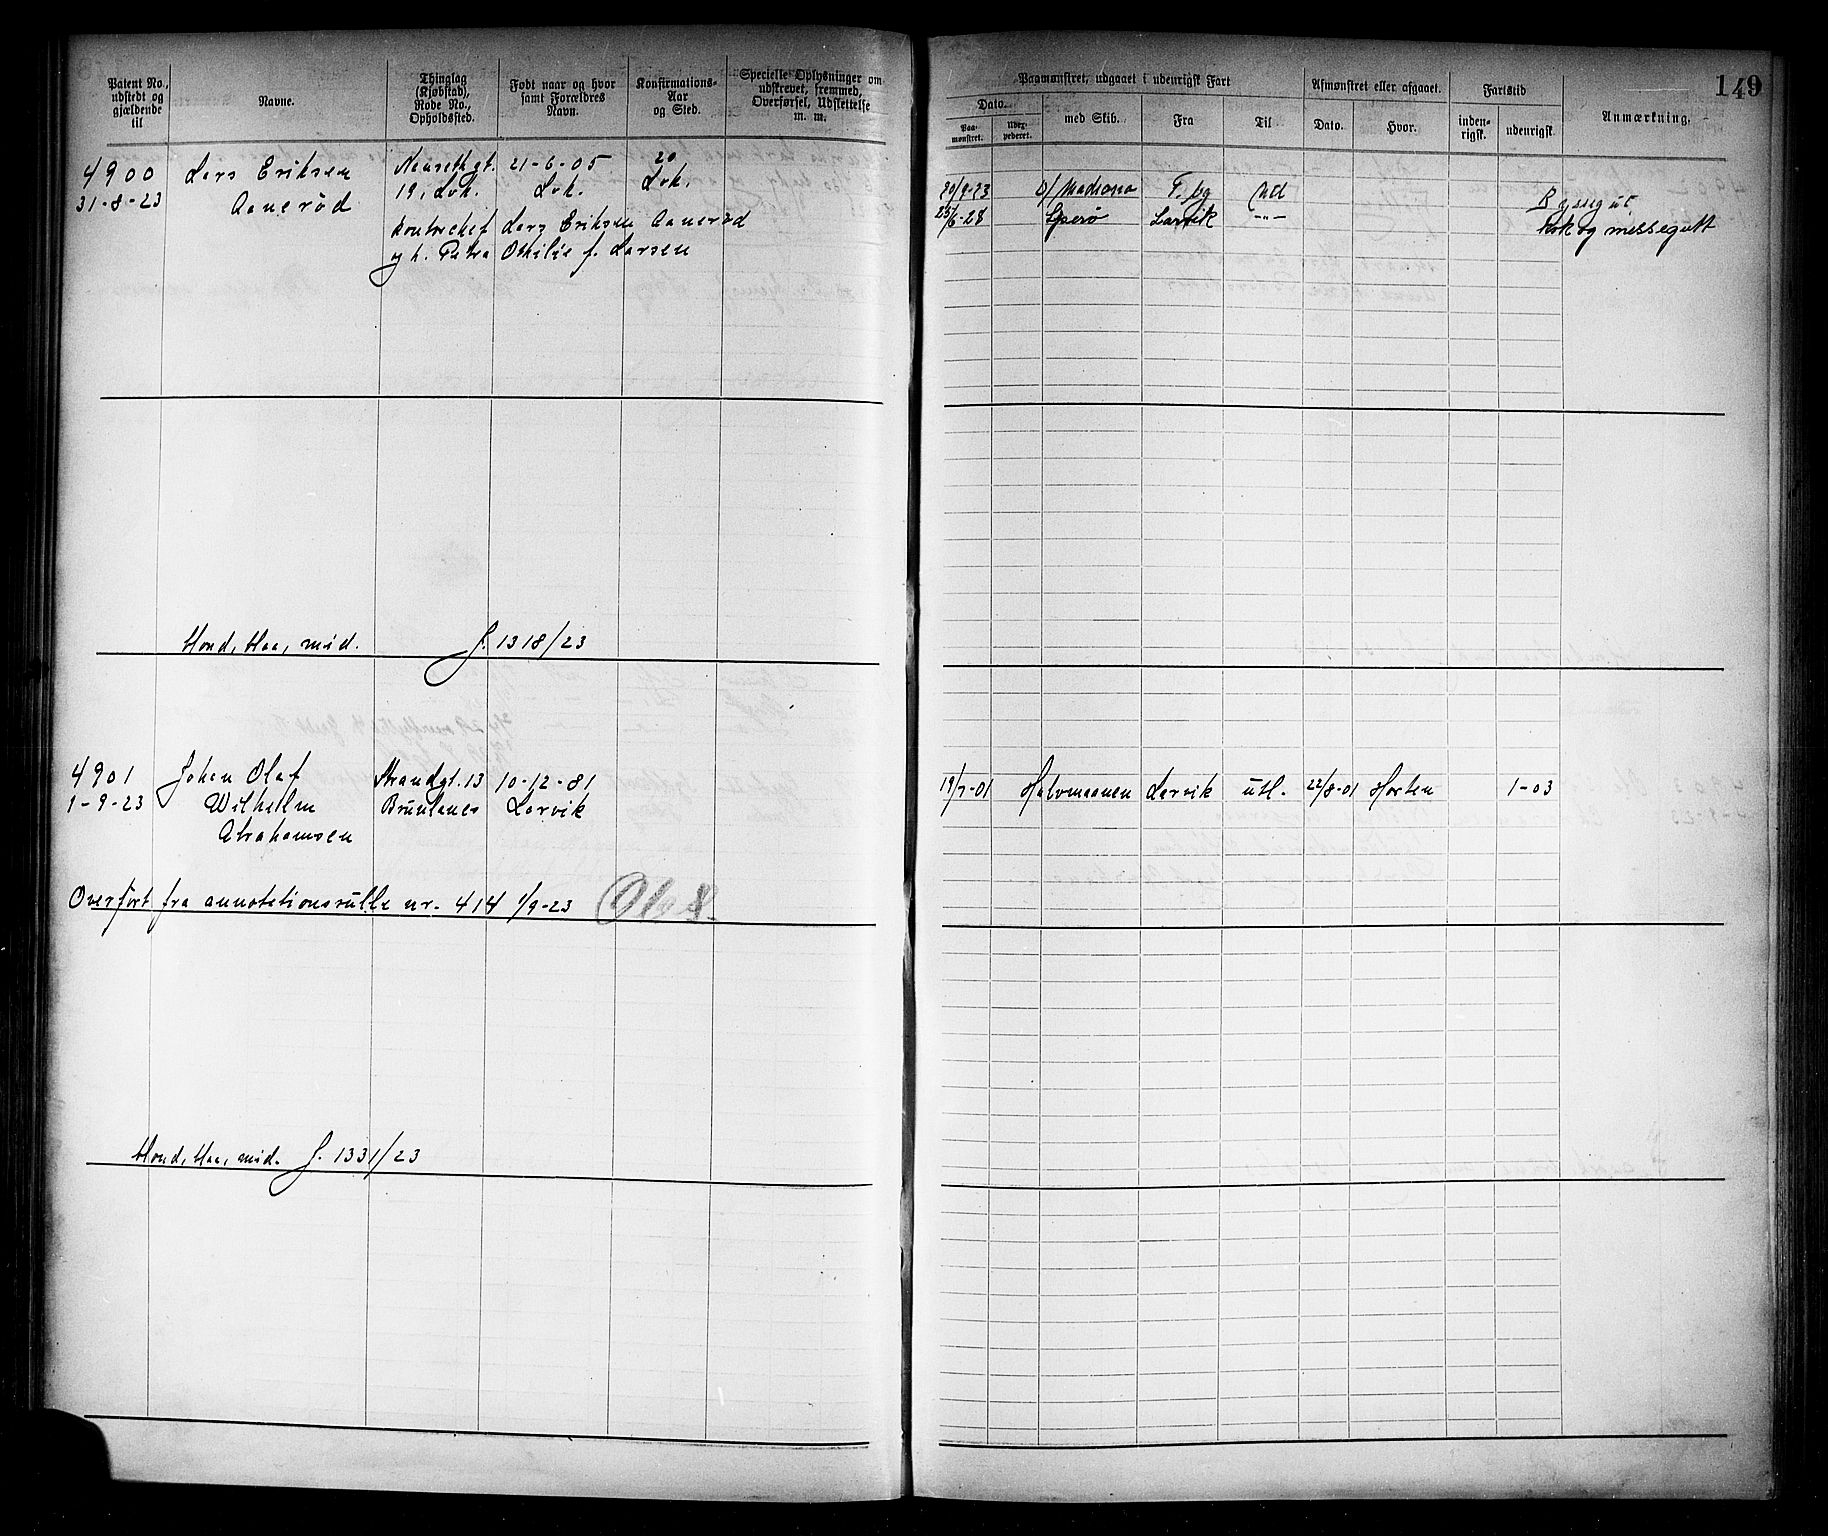 149
Patent No., udstedt og gjældende til
Navne.
Thinglag (Kjøbstad), Rode No., Opholdssted.
Født naar og hvor samt Forældres Navn.
Konfirmations-Aar og Sted.
Specielle Oplysninger om udskrevet, fremmed, Overførsel, Udslettelse m. m.
Paamønstret, udgaaet i udenrigsk Fart
Dato.
Paa-mønstret.
Udex-pederet.
med Skib.
Fra
Til
Afmønstret eller afgaaet.
Dato.
Hvor.
Fartstid
inden-rigsk.
udenrigsk
Anmærkning.
4900 Lars Eriksen 21-6-05 20
31-8-23 Aanerød 19, Lvk. Lvk. Lvk.
Lars Eriksen Aanerød
og h. Petra Othilie f. Larsen
20/9-23 D/ Madrono T.bg Utl Byssegut
25/6-28 Sperø Larvik -"- Kok og messegutt
J. 1318/23
4901 Johan Olaf Strandgt. 13 10-12-81
1-9-23 Wilhelm Brunlanes Larvik
Abrahamsen
19/7-01 Halvmaanen Larvik utl. 22/8-01 Horten 1-03
Overført fra annotationsrulle nr. 414 1/9-23
J. 1331/23